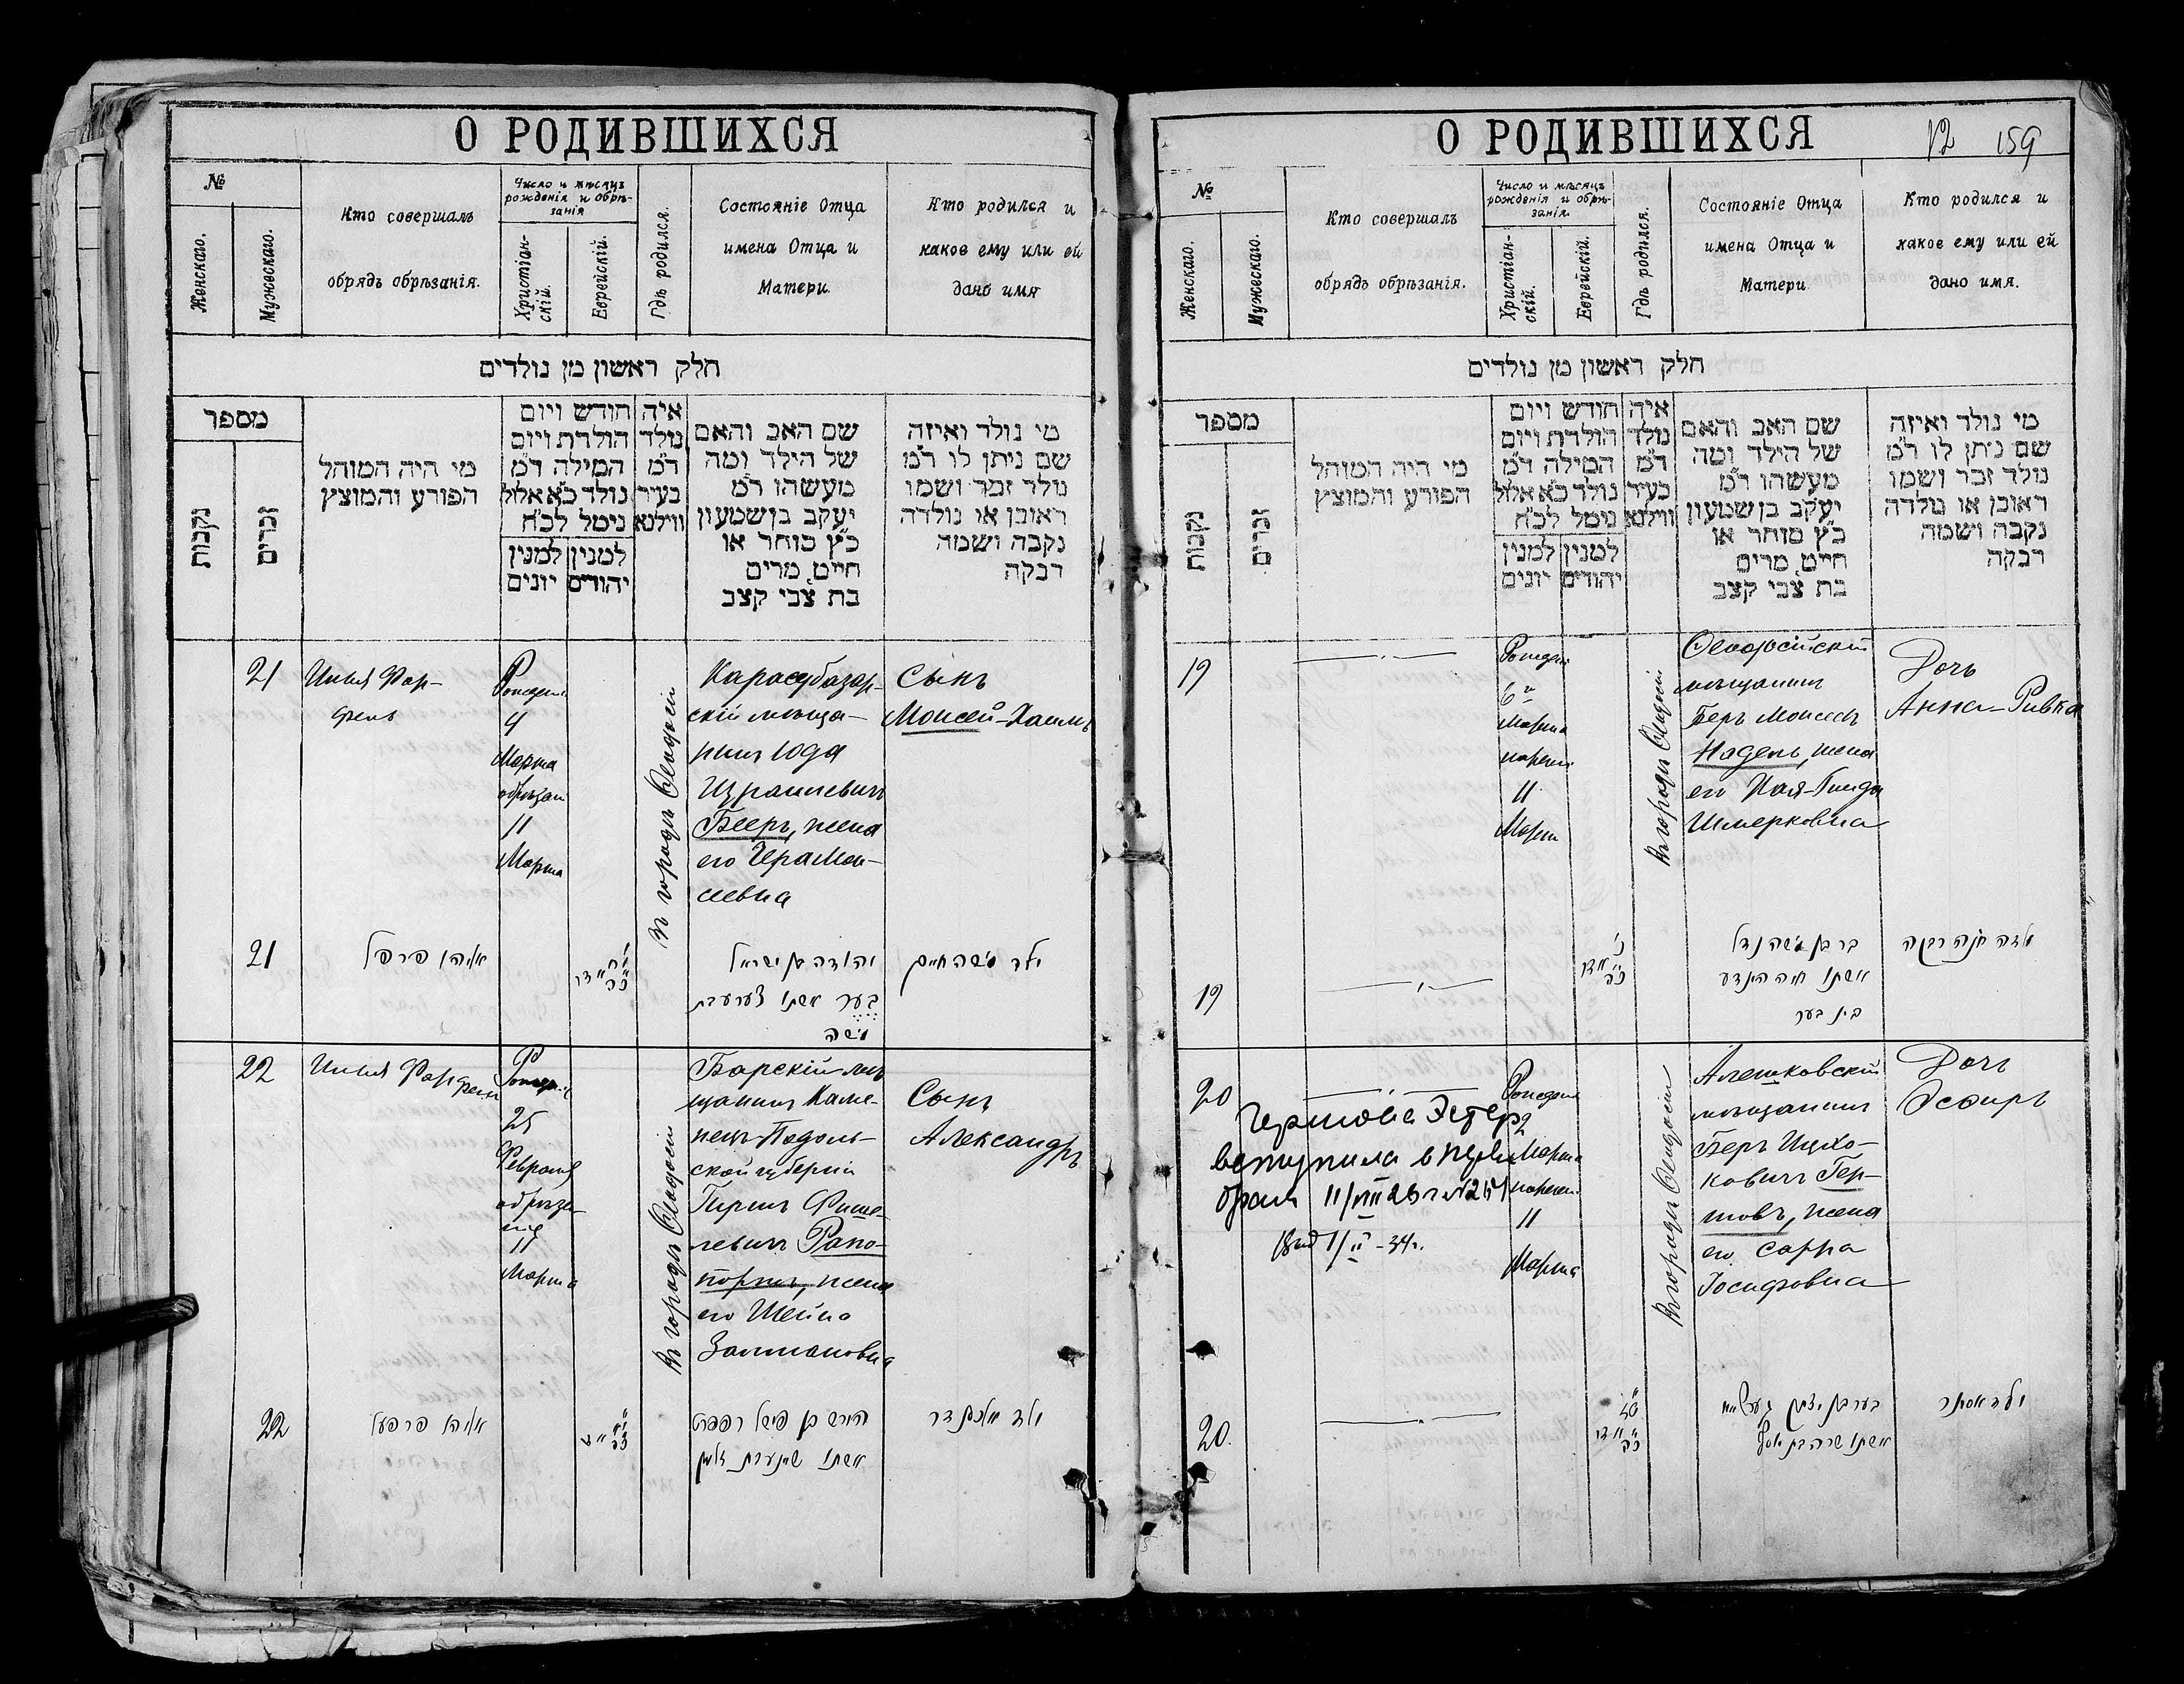 О РОДИВШИХСЯ
№
Женскаго.
Мужескаго.
Кто совершалъ
обрядъ обрѣзанія.
Число и мѣсяцъ
рожденія и обрѣ-
занія
Христіан-
скій.
Еврейскій.
Гдѣ родился.
Состояніе Отца
имена Отца и
Матери
Кто родился и
какое ему или ей
дано имя
חלק ראשון מן נולדים
מספר
נקבות
זכרים
מי היה המוהל
הפורע והמוצץ
חודש ויום
הולדת ויום
המילה ד״מ
נולד כ״א אלול
נימל לכ״ח
למנין למנין
יהודים יונים
איה
נולד
ד״מ
בעיר
ווילנא
שם האב והאם
של הילד ומה
מעשהו ד״מ
יעקב בן שמעון
כ״ץ סוחר או
חייט, מרים
בת צבי קצב
מי נולד ואיזה
שם ניתן לו ד״מ
נולד זכר ושמו
ראובן או נולדה
נקבה ושמה
רבקה
21
4
Марта
11
Марта
Карасубазар-
скій мѣща-
нинъ Юда
Израилевичъ
Бееръ, жена
его
Сынъ
Моисей-Хаимъ
Въ городѣ Ѳеодосіи
21
יהודה בן ישראל
בער אשתו
משה
ילד משה חיים
22
25
Февраля
11
Марта
Въ городѣ Ѳеодосіи
Барскій мѣ-
щанинъ Каме-
нецъ-Подоль-
ской губерніи
Гиршъ Фише-
левичъ Рапо-
портъ, жена
его Шейна
Залмановна
Сынъ
Александръ
22
הירש בן פישל
ילד אלכסנדר
О РОДИВШИХСЯ
12 159
№
Женскаго.
Мужескаго.
Кто совершалъ
обрядъ обрѣзанія.
Число и мѣсяцъ
рожденія и обрѣ-
занія.
Христіан-
скій.
Еврейскій.
Гдѣ родился.
Состояніе Отца
имена Отца и
Матери
Кто родился и
какое ему или ей
дано имя.
חלק ראשון מן נולדים
מספר
נקבות
זכרים
מי היה המוהל
הפורע והמוצץ
חודש ויום
הולדת ויום
המילה ד״מ
נולד כ״א אלול
נימל לכ״ח
למנין למנין
יהודים יונים
איה
נולד
ד״מ
בעיר
ווילנא
שם האב והאם
של הילד ומה
מעשהו ד״מ
יעקב בן שמעון
כ״ץ סוחר או
חייט, מרים
בת צבי קצב
מי נולד ואיזה
שם ניתן לו ד״מ
נולד זכר ושמו
ראובן או נולדה
נקבה ושמה
רבקה
19
6
Марта
11
Марта
Въ городѣ Ѳеодосіи
Ѳеодосійскій
мѣщанинъ
Беръ Моисеевъ
Надель, жена
его Хая-Гинда
Шмерковна
Дочь
Анна-Ривка
19
בר בן משה נדל
אשתו חיה הינדע
ילדה חנה רבקה
20
Гершова Эстер
вступила в
брак 11/VIII 28 г №
1/II-34г.
2
Марта
11
Марта
Въ городѣ Ѳеодосіи
Алешковскій
мѣщанинъ
Беръ Ицко-
ковичъ Гер-
шовъ, жена
его Сарра
Іосифовна
Дочь
Эсѳирь
20.
בער בן יצחק
אשתו שרה בת יוסף
ילד אסתר